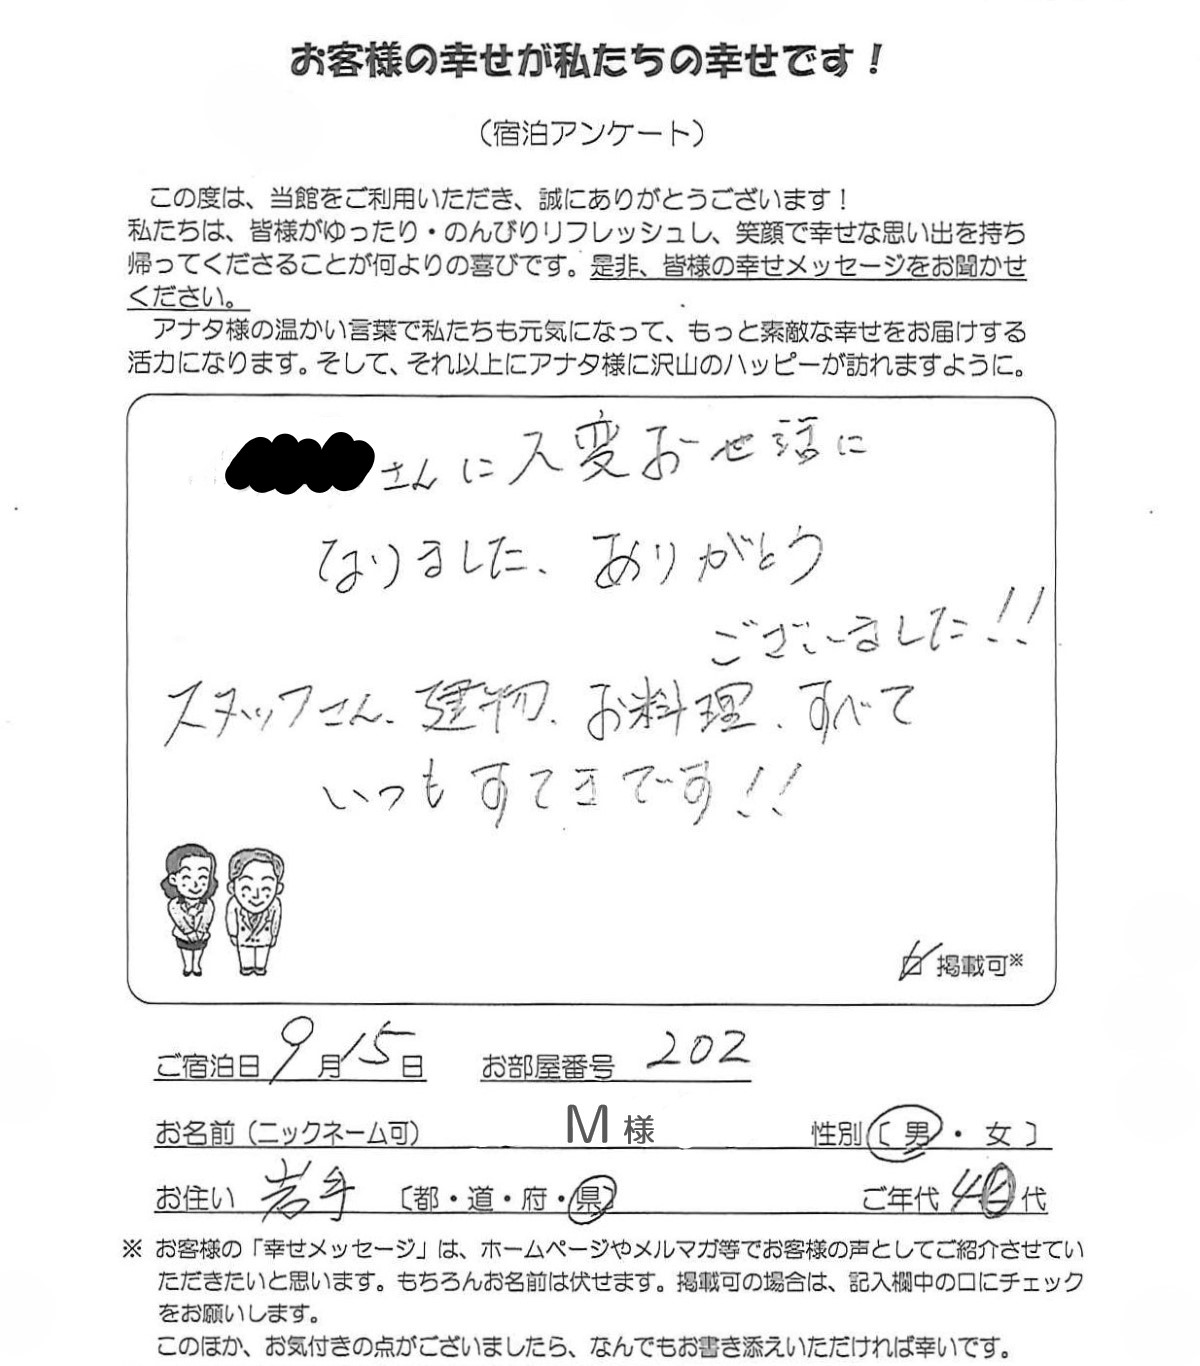 お客様の幸せが私たちの幸せです！
（宿泊アンケート）
この度は、当館をご利用いただき、誠にありがとうございます！
私たちは、皆様がゆったり・のんびりリフレッシュし、笑顔で幸せな思い出を持ち
帰ってくださることが何よりの喜びです。是非、皆様の幸せメッセージをお聞かせ
ください。
アナタ様の温かい言葉で私たちも元気になって、もっと素敵な幸せをお届けする
活力になります。そして、それ以上にアナタ様に沢山のハッピーが訪れますように。
さんに大変お世話に
なりました、ありがとう
ございました!!
スタッフさん、建物、お料理、すべて
いつもすてきです!!
☑ 掲載可※
ご宿泊日 9月15日 お部屋番号 202
お名前（ニックネーム可） M様 性別〔 男・女 〕
お住い 岩手 〔都・道・府・県〕 ご年代 40代
※ お客様の「幸せメッセージ」は、ホームページやメルマガ等でお客様の声としてご紹介させてい
ただきたいと思います。もちろんお名前は伏せます。掲載可の場合は、記入欄中の口にチェック
をお願いします。
このほか、お気付きの点がございましたら、なんでもお書き添えいただければ幸いです。